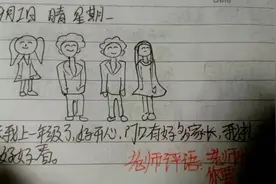 9月1日 晴 星期一
我上一年级了,好开心,门口有好多家长,我
好好看。
老师评语:老师